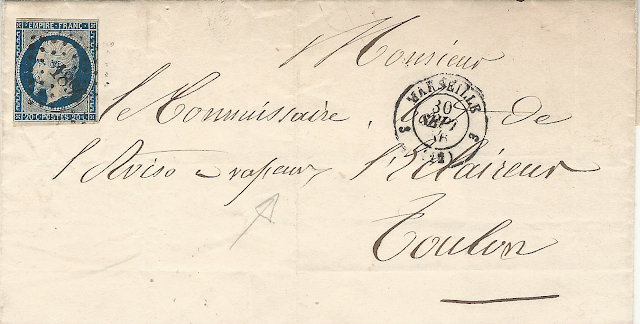 EMPIRE FRANC
20C POSTES 20C
Monsieur
le Commissaire, de
l'Aviso à vapeur l'Eclaireur
Toulon
MARSEILLE
30
SEPT
3 3
(12)